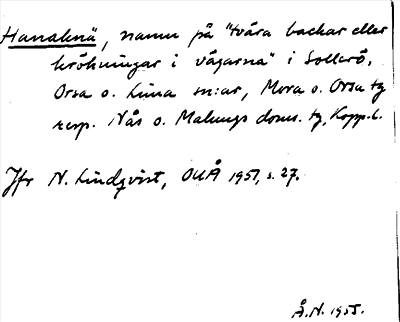 Hanaknä, namn på "tvära backar eller
krökningar i vägarna" i Sollerö,
Orsa o. Lima sn:ar, Mora o. Orsa tg
resp. Nås o. Malungs doms. tg, Kopp. l.
Jfr N. Lindqvist, OUÅ 1951, s. 27.
Å.N. 1955.